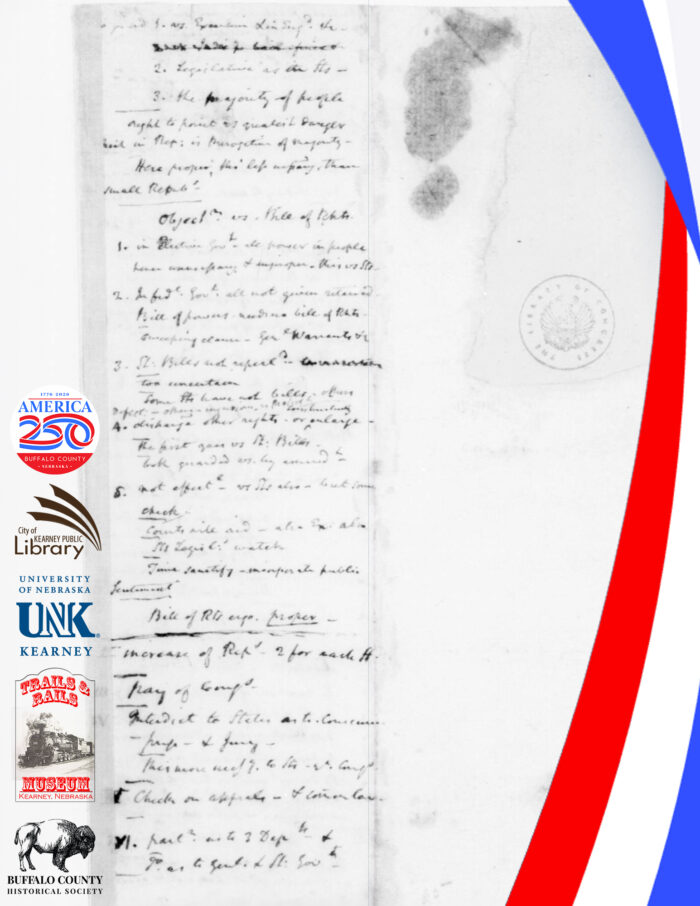 2. Legislative as the Sts —
3. the majority of people
right to point as greatest danger
in Rep: is Prerogative of majority —
Here proper, tho' less necessy. than
small Repub
Object vs. Bill of Rhts.
1. in Elective Govt. all power in people
hence unnecessary & improper — this vs Sts.
2. In fedl. Govt. all not given retained
Bill of powers — needs no bill of Rhts —
sweeping clause — Genl Warrants &c
3. St: Bills not repeald.
too uncertain
Some Sts have not bills, others
defect —
4. disparage other rights — or enlarge —
the first goes vs St: Bills —
both guarded vs. by
5. not effectl. — vs Sts also — but some
check.
Courts will aid — also Ex: also
Sts Legisl: watch
Time sanctify — incorporate public
Sentiment
Bill of Rts ergo. proper —
increase of Reps — 2 for each St.
pay of Congs.
Interdict to States as to Conscience
— press — & Jury —
This more necsy. to Sts — yn. Congs.
Check on appeals — & common law.
VI. partn. as to 3 Depts — &
do. as to Genl: & St: Govts
THE LIBRARY OF CONGRESS
1776-2026
AMERICA
250
BUFFALO COUNTY
NEBRASKA
City of
KEARNEY PUBLIC
Library
UNIVERSITY
OF NEBRASKA
UNK
KEARNEY
TRAILS &
RAILS
MUSEUM
KEARNEY, NEBRASKA
BUFFALO COUNTY
HISTORICAL SOCIETY